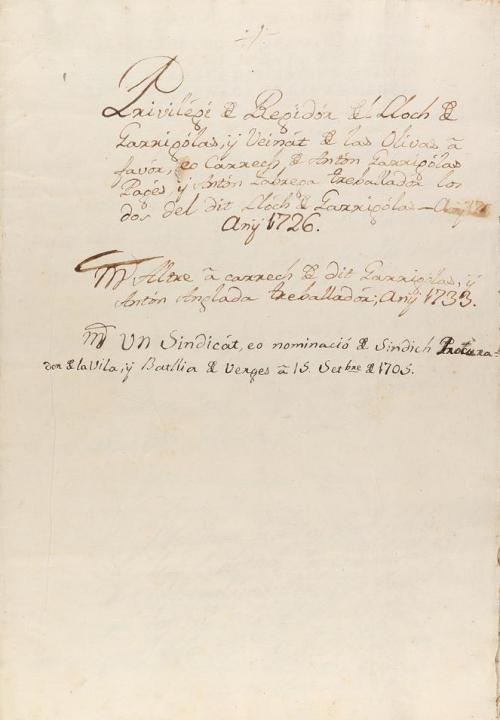 -1-
Privilégi de Regidór del Lloch de
Garrigólas, ÿ Veinát de las Olivas á
favór, eo Carrech de Antón Garrigólas
Pagés, ÿ Antón Labrega treballadór los
dos del dit Llóch de Garrigólas - Anÿ
Anÿ 1726.
Mes Altre á carrech de dit Garrigólas, ÿ
Antón Anglada treballadór; Anÿ 1733.
Mes UN Sindicát, eo nominació de Sindich Procura-
dor de la Vila, ÿ Batllia de Verges á 15. Setbre de 1705.